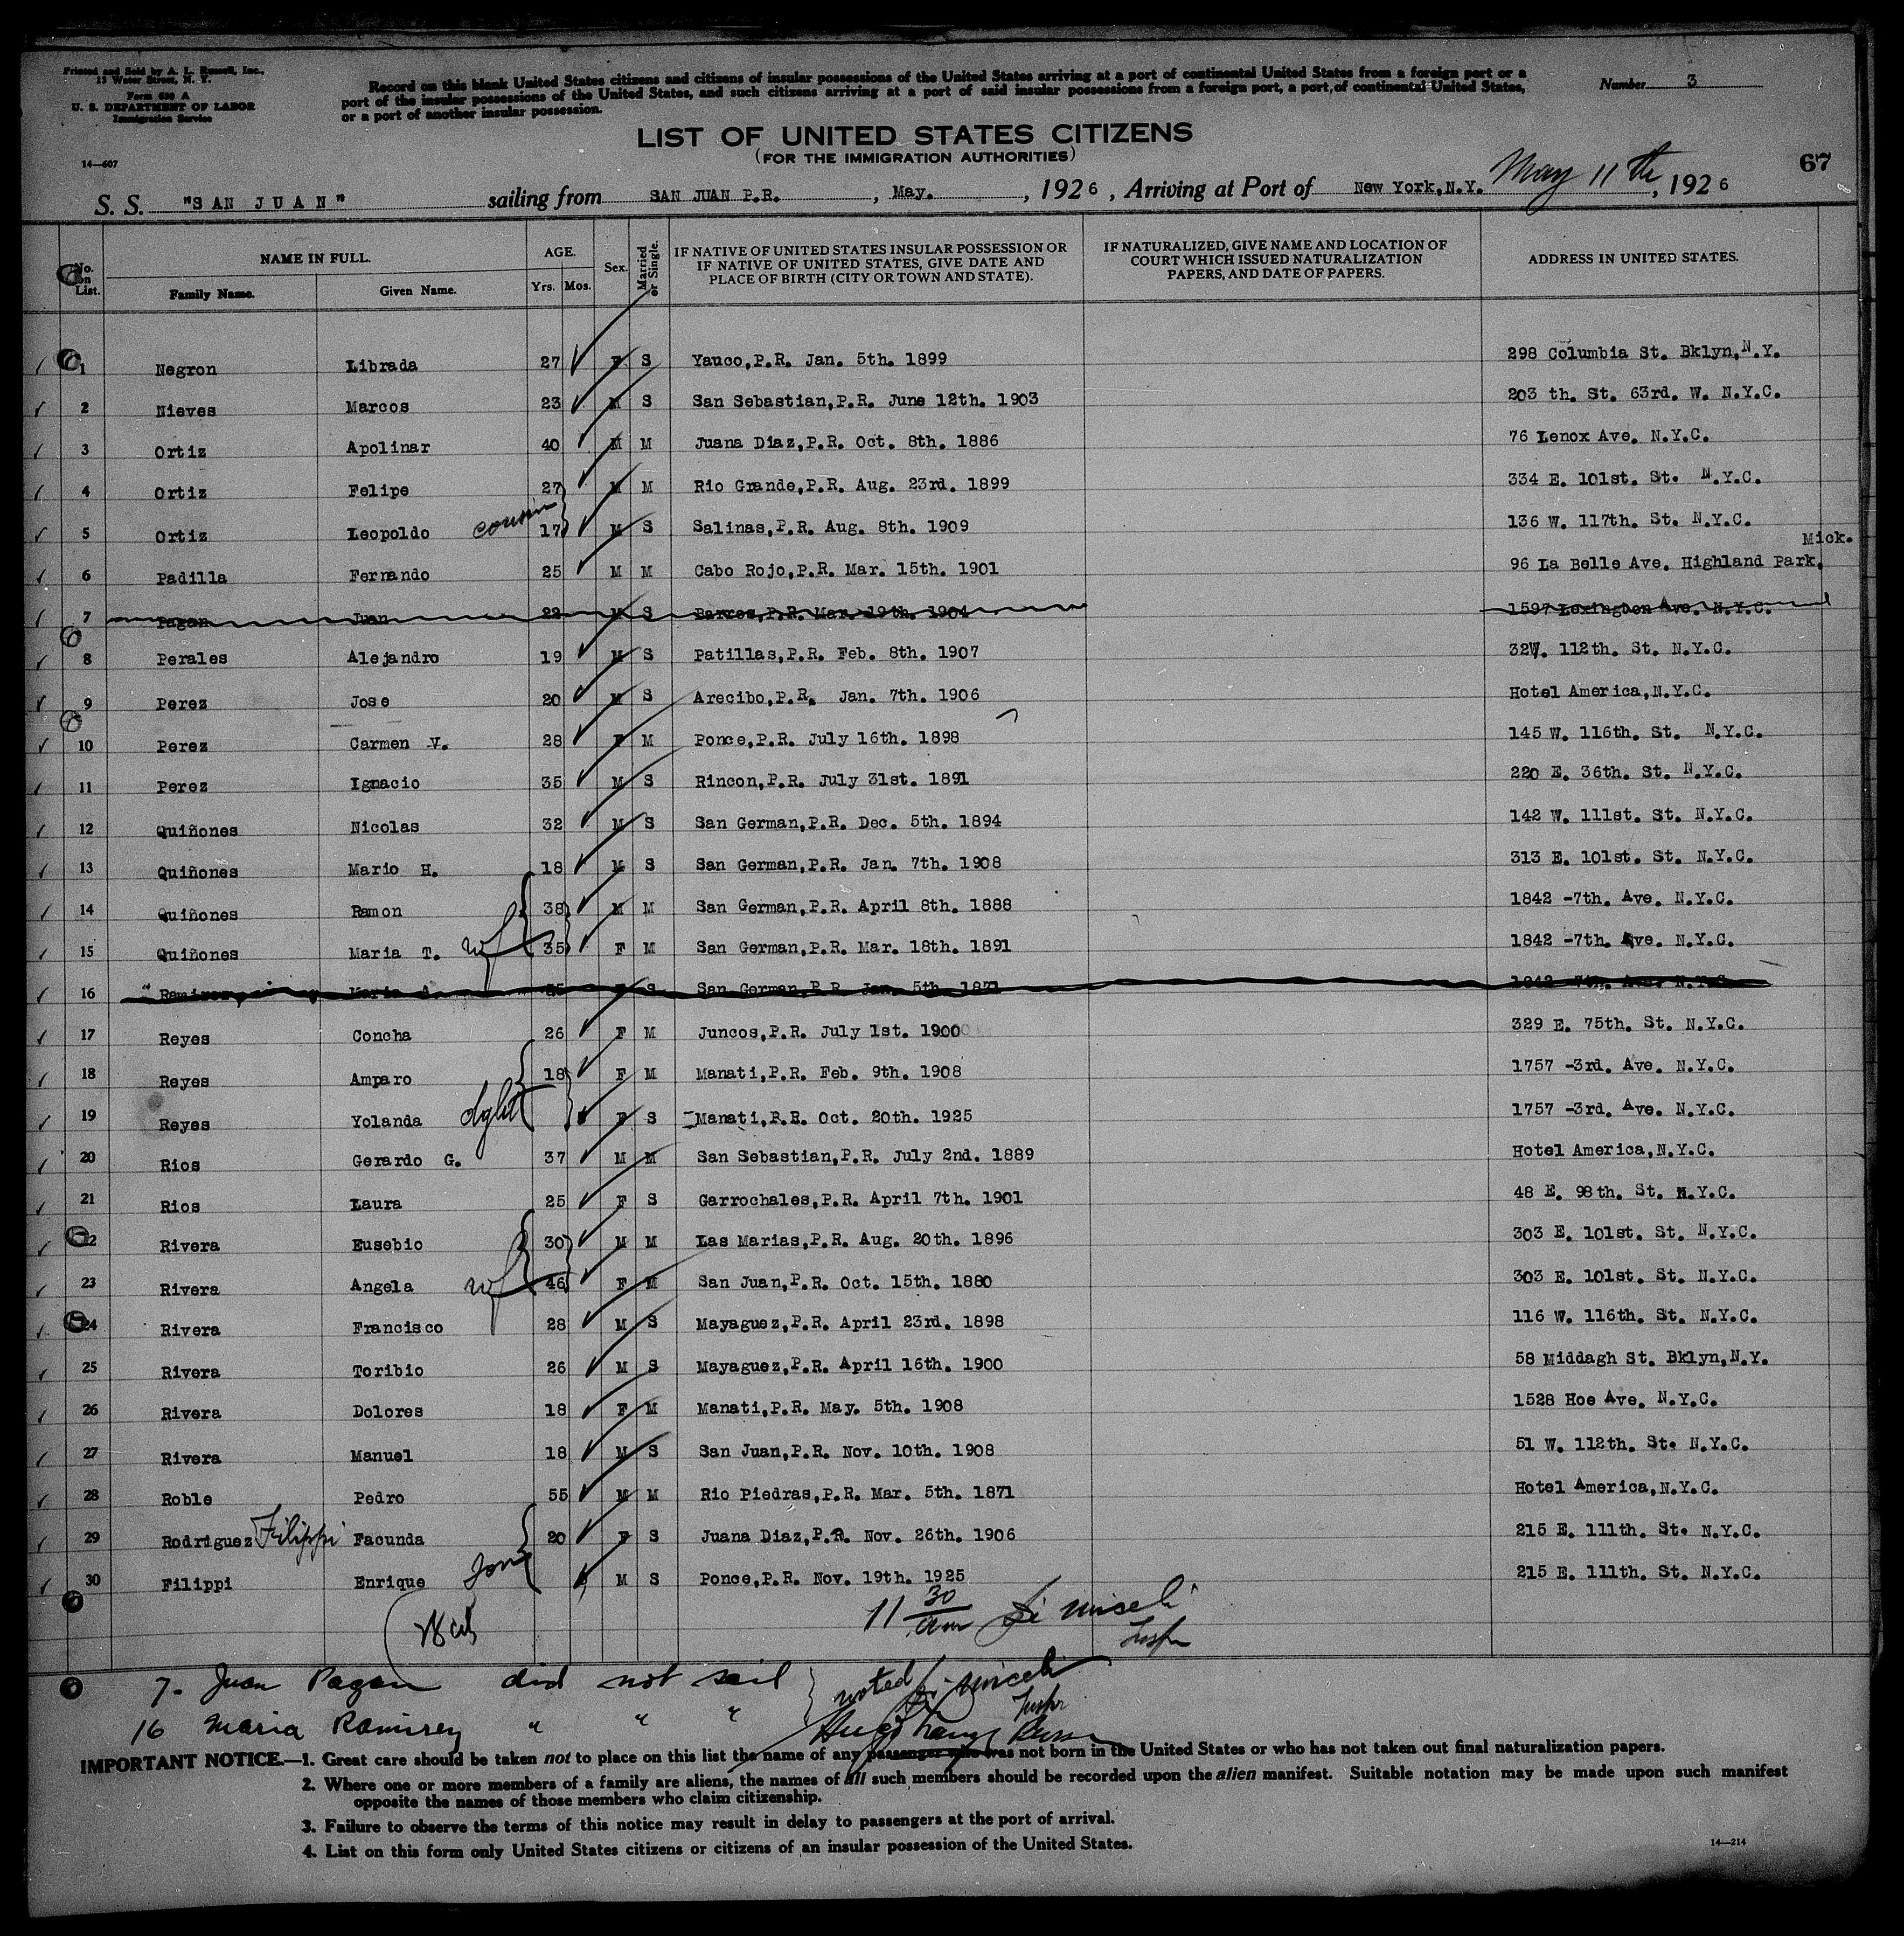 Printed and Sold by A. L. Russell, Inc.,
13 Water Street, N. Y.
Form 630 A
U. S. DEPARTMENT OF LABOR
Immigration Service
14—607
Record on this blank United States citizens and citizens of insular possessions of the United States arriving at a port of continental United States from a foreign port or a
port of the insular possessions of the United States, and such citizens arriving at a port of said insular possessions from a foreign port, a port, of continental United States,
or a port of another insular possession.
Number 3
LIST OF UNITED STATES CITIZENS
(FOR THE IMMIGRATION AUTHORITIES)
67
S. S. "SAN JUAN" sailing from SAN JUAN P.R. , May. , 1926 , Arriving at Port of New York,N.Y. May 11th, 1926
No. on List. NAME IN FULL. Family Name. Given Name. AGE. Yrs. Mos. Sex. Married or Single. IF NATIVE OF UNITED STATES INSULAR POSSESSION OR IF NATIVE OF UNITED STATES, GIVE DATE AND PLACE OF BIRTH (CITY OR TOWN AND STATE). IF NATURALIZED, GIVE NAME AND LOCATION OF COURT WHICH ISSUED NATURALIZATION PAPERS, AND DATE OF PAPERS. ADDRESS IN UNITED STATES.
1 Negron Librada 27 F S Yauco,P.R. Jan. 5th. 1899 298 Columbia St. Bklyn,N.Y.
2 Nieves Marcos 23 M S San Sebastian,P.R. June 12th. 1903 203 th. St. 63rd. W. N.Y.C.
3 Ortiz Apolinar 40 M M Juana Diaz,P.R. Oct. 8th. 1886 76 Lenox Ave. N.Y.C.
4 Ortiz Felipe 27 M M Rio Grande,P.R. Aug. 23rd. 1899 334 E. 101st. St. N.Y.C.
5 Ortiz Leopoldo cousin 17 M S Salinas,P.R. Aug. 8th. 1909 136 W. 117th. St. N.Y.C.
6 Padilla Fernando 25 M M Cabo Rojo,P.R. Mar. 15th. 1901 96 La Belle Ave. Highland Park, Mick.
7 Pagan Juan 22 M S Barros,P.R. Mar. 19th. 1904 1597 Lexington Ave. N.Y.C.
8 Perales Alejandro 19 M S Patillas,P.R. Feb. 8th. 1907 32W. 112th. St. N.Y.C.
9 Perez Jose 20 M S Arecibo,P.R. Jan. 7th. 1906 Hotel America,N.Y.C.
10 Perez Carmen V. 28 F M Ponce,P.R. July 16th. 1898 145 W. 116th. St. N.Y.C.
11 Perez Ignacio 35 M S Rincon,P.R. July 31st. 1891 220 E. 36th. St. N.Y.C.
12 Quiñones Nicolas 32 M S San German,P.R. Dec. 5th. 1894 142 W. 111st. St. N.Y.C.
13 Quiñones Mario H. 18 M S San German,P.R. Jan. 7th. 1908 313 E. 101st. St. N.Y.C.
14 Quiñones Ramon 38 M M San German,P.R. April 8th. 1888 1842 -7th. Ave. N.Y.C.
15 Quiñones Maria T. wf 35 F M San German,P.R. Mar. 18th. 1891 1842 -7th. Ave. N.Y.C.
16 Ramirez Maria F S San German,P.R. Jan. 5th. 1871 1842 -7th. Ave. N.Y.C.
17 Reyes Concha 26 F M Juncos,P.R. July 1st. 1900 329 E. 75th. St. N.Y.C.
18 Reyes Amparo 18 F M Manati,P.R. Feb. 9th. 1908 1757 -3rd. Ave. N.Y.C.
19 Reyes Yolanda F S Manati,P.R. Oct. 20th. 1925 1757 -3rd. Ave. N.Y.C.
20 Rios Gerardo G. 37 M M San Sebastian,P.R. July 2nd. 1889 Hotel America,N.Y.C.
21 Rios Laura 25 F S Garrochales,P.R. April 7th. 1901 48 E. 98th. St. N.Y.C.
22 Rivera Eusebio 30 M M Las Marias,P.R. Aug. 20th. 1896 303 E. 101st. St. N.Y.C.
23 Rivera Angela wf 46 F M San Juan,P.R. Oct. 15th. 1880 303 E. 101st. St. N.Y.C.
24 Rivera Francisco 28 M S Mayaguez,P.R. April 23rd. 1898 116 W. 116th. St. N.Y.C.
25 Rivera Toribio 26 M S Mayaguez,P.R. April 16th. 1900 58 Middagh St. Bklyn,N.Y.
26 Rivera Dolores 18 F M Manati,P.R. May. 5th. 1908 1528 Hoe Ave. N.Y.C.
27 Rivera Manuel 18 M S San Juan,P.R. Nov. 10th. 1908 51 W. 112th. St. N.Y.C.
28 Roble Pedro 55 M M Rio Piedras,P.R. Mar. 5th. 1871 Hotel America,N.Y.C.
29 Rodriguez Filippi Facunda 20 F S Juana Diaz,P.R. Nov. 26th. 1906 215 E. 111th. St. N.Y.C.
30 Filippi Enrique son M S Ponce,P.R. Nov. 19th. 1925 215 E. 111th. St. N.Y.C.
11 30 am Inspr
7- Juan Pagan did not sail noted Inspr
16 Maria Ramirez " " "
IMPORTANT NOTICE.—1. Great care should be taken not to place on this list the name of any passenger who was not born in the United States or who has not taken out final naturalization papers.
2. Where one or more members of a family are aliens, the names of all such members should be recorded upon the alien manifest. Suitable notation may be made upon such manifest
opposite the names of those members who claim citizenship.
3. Failure to observe the terms of this notice may result in delay to passengers at the port of arrival.
4. List on this form only United States citizens or citizens of an insular possession of the United States.
14—214